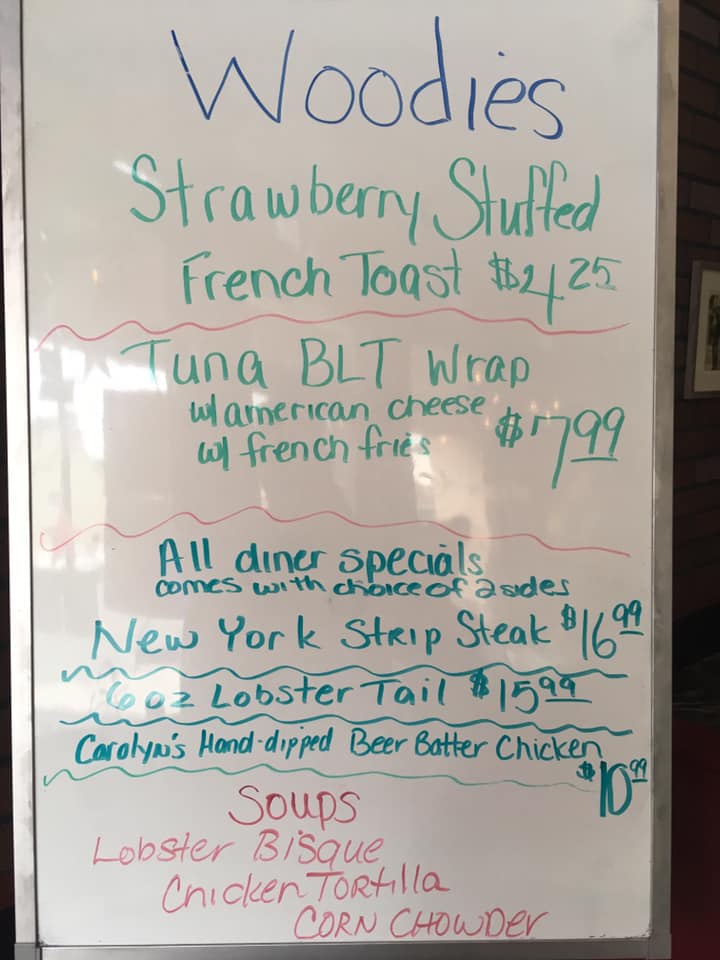 Woodies
Strawberry Stuffed
French Toast $4.25
Tuna BLT Wrap
w/ american cheese
w/ french fries $7.99
All diner specials
comes with choice of 2 sides
New York Strip Steak $16.99
6 oz Lobster Tail $15.99
Carolyn's Hand-dipped Beer Batter Chicken
$10.99
Soups
Lobster Bisque
Chicken Tortilla
CORN CHOWDER